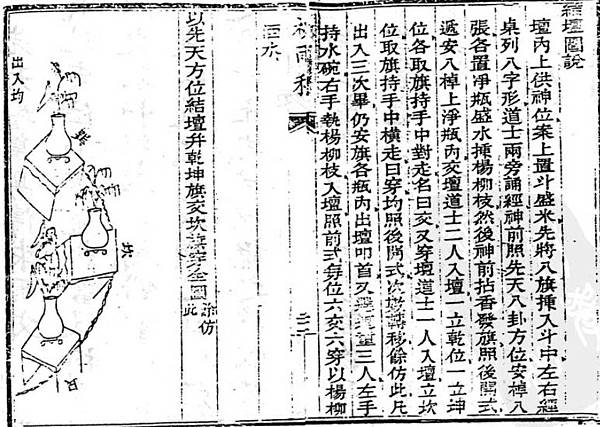 結壇圖說
壇內上供神位案上置斗盛米先將八旗揷入斗中左右經
卓列八字形道士兩旁誦經神前照先天八卦方位安棹八
張各置淨瓶盛水揷楊柳枝然後神前拈香發旗照後開式
遞安八棹上淨瓶內交壇道士二人入壇一立乾位一立坤
位各取旗持手中對走名曰交又穿壇道士一人入壇立坎
位取旗持手中橫走曰穿均照後開式次第轉移餘仿此凡
出入三次畢仍安旗各瓶內出壇叩首又三人左手
持水碗右手執楊柳枝入壇照前式每位六交六穿以楊柳
祈雨
洒水
以先天方位結壇升乾坤旗交坎旗穿全圖餘仿此
出入均
坎